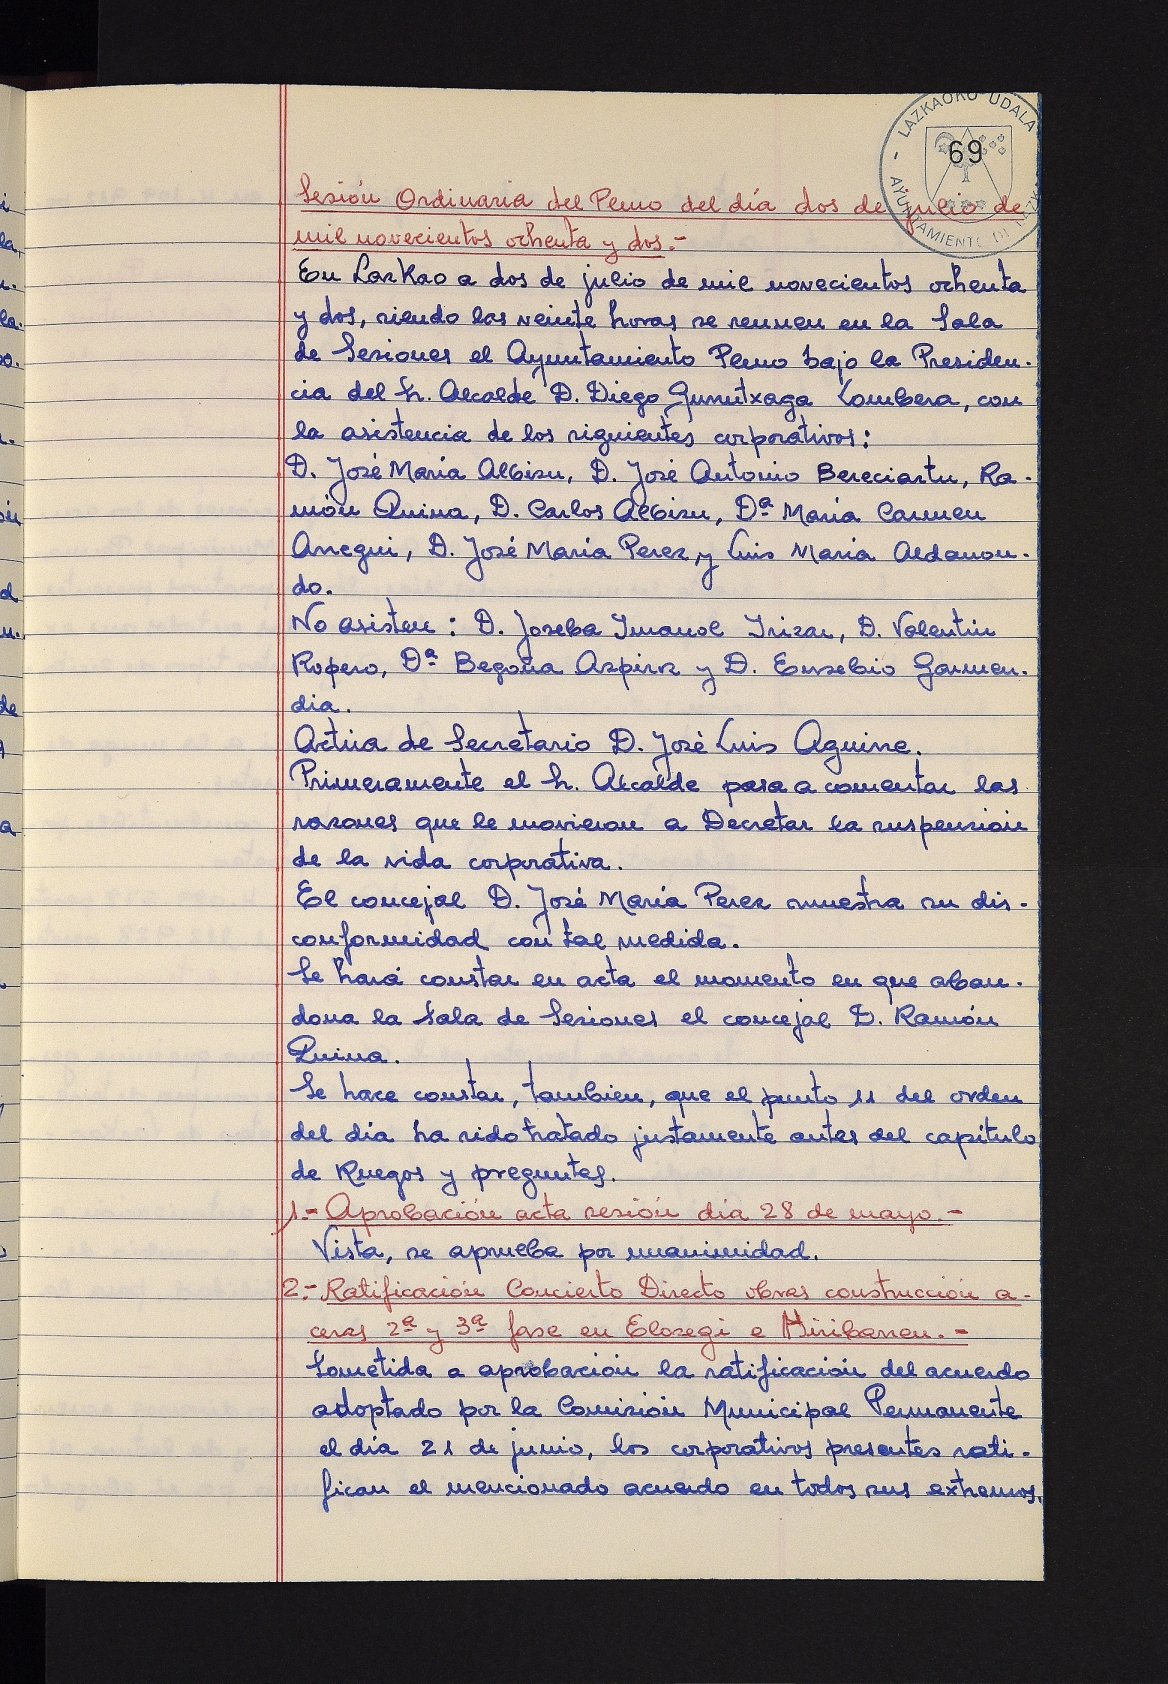 - LAZKAOKO UDALA
69
AYUNTAMIENTO DE
Sesión Ordinaria del Pleno del día dos de julio de
mil novecientos ochenta y dos.-
En Lazkao a dos de julio de mil novecientos ochenta
y dos, siendo las veinte horas se reunen en la Sala
de Sesiones el Ayuntamiento Pleno bajo la Presiden-
cia del Sr. Alcalde D. Diego Gurrutxaga Lombera, con
la asistencia de los siguientes corporativos:
D. José María Albisu, D. José Antonio Bereciartu, Ra-
món Quina, D. Carlos Albisu, Dª María Carmen
Arregui, D. José María Perez y Luis María Aldanon-
do.
No asisten: D. Joseba Imanol Irizar, D. Valentin
Ropero, Dª Begoña Azpiroz y D. Eusebio Garmen-
dia.
Actúa de Secretario D. José Luis Aguirre.
Primeramente el Sr. Alcalde pasa a comentar las
razones que le movieron a Decretar la suspensión
de la vida corporativa.
El concejal D. José María Perez muestra su dis-
conformidad con tal medida.
Se hará constar en acta el momento en que aban-
dona la Sala de Sesiones el concejal D. Ramón
Quina.
Se hace constar, tambien, que el punto 11 del orden
del día ha sido tratado justamente antes del capítulo
de Ruegos y preguntas.
1.- Aprobación acta sesión día 28 de mayo.-
Vista, se aprueba por unanimidad.
2.- Ratificación Concierto Directo obras construcción a-
ceras 2ª y 3ª fase en Elosegi e Hiribarren.-
Sometida a aprobación la ratificación del acuerdo
adoptado por la Comisión Municipal Permanente
el día 21 de junio, los corporativos presentes rati-
fican el mencionado acuerdo en todos sus extremos.